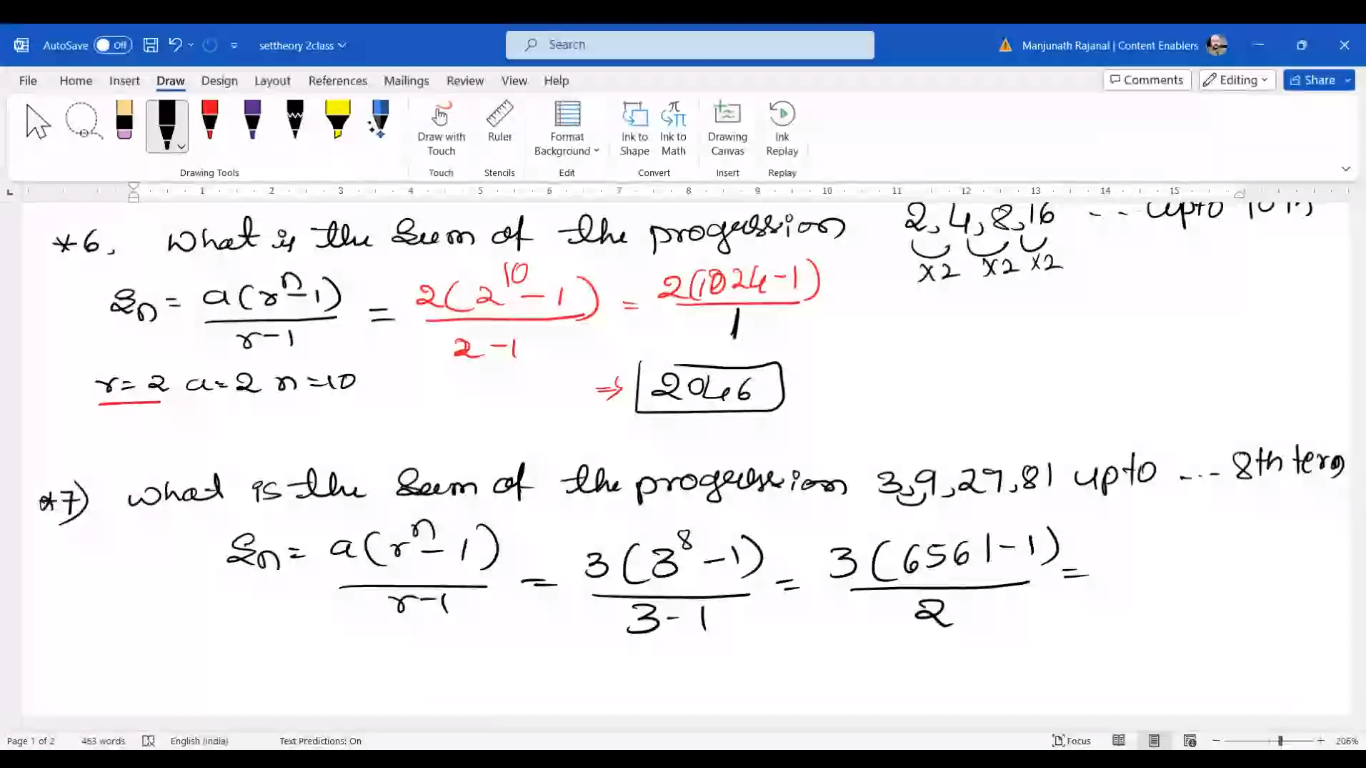 AutoSave Off settheory 2class Search Manjunath Rajanal | Content Enablers
File Home Insert Draw Design Layout References Mailings Review View Help Comments Editing Share
Draw with Touch Ruler Format Background Ink to Shape Ink to Math Drawing Canvas Ink Replay
Drawing Tools Touch Stencils Edit Convert Insert Replay
1 2 3 4 5 6 7 8 9 10 11 12 13 14 15
*6. What is the Sum of the progression 2,4,8,16 ... upto
×2 ×2 ×2
Sn = a(r^n-1)/r-1 = 2(2^10-1)/2-1 = 2(1024-1)/1
r=2 a=2 n=10 ⇒ 2046
*7) what is the Sum of the progression 3,9,27,81 upto ... 8th term
Sn = a(r^n-1)/r-1 = 3(3^8-1)/3-1 = 3(6561-1)/2 =
Page 1 of 2 463 words English (India) Text Predictions: On Focus 206%